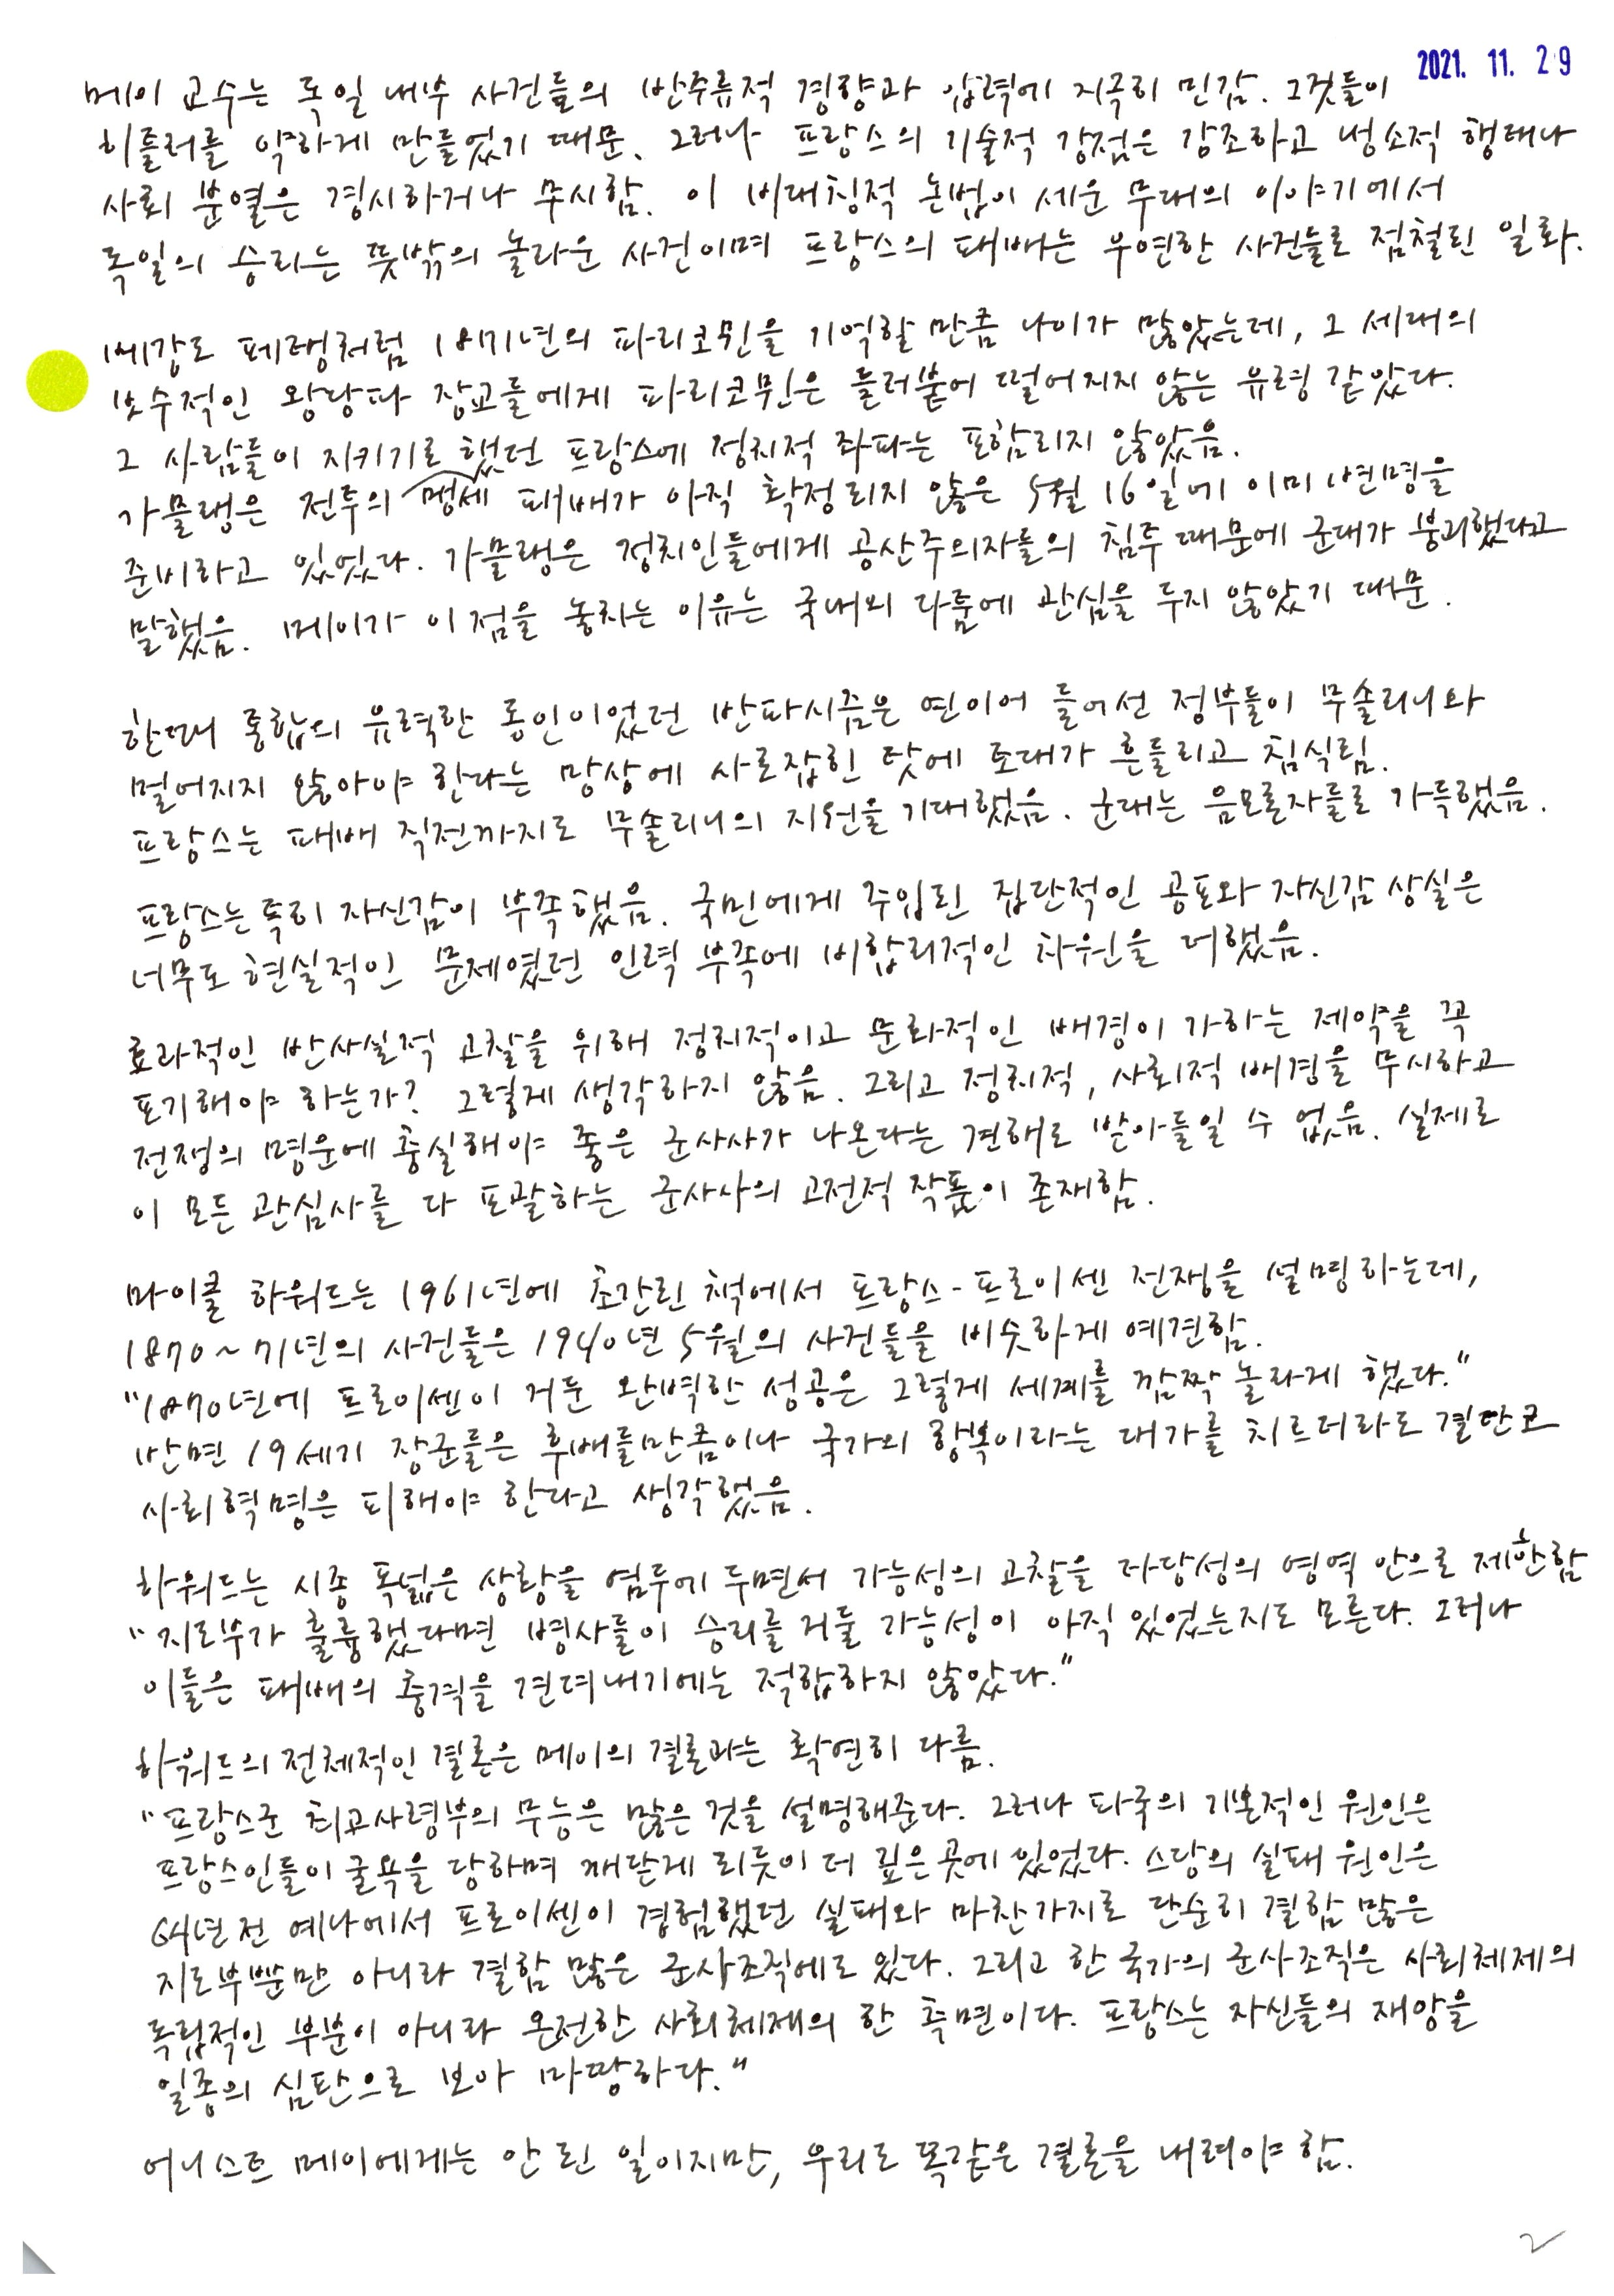 2021. 11. 29
메이 교수는 독일 내부 사건들의 반주류적 경향과 압력에 지극히 민감. 그것들이
히틀러를 약하게 만들었기 때문. 그러나 프랑스의 기술적 강점은 강조하고 냉소적 행태나
사회 분열은 경시하거나 무시함. 이 비대칭적 논법이 세운 무대의 이야기에서
독일의 승리는 뜻밖의 놀라운 사건이며 프랑스의 패배는 우연한 사건들로 점철된 일화.
베강도 페탱처럼 1871년의 파리코뮌을 기억할 만큼 나이가 많았는데, 그 세대의
보수적인 왕당파 장교들에게 파리코뮌은 들러붙어 떨어지지 않는 유령 같았다.
그 사람들이 지키기로 맹세했던 프랑스에 정치적 좌파는 포함되지 않았음.
가믈랭은 전투의 패배가 아직 확정되지 않은 5월 16일에 이미 변명을
준비하고 있었다. 가믈랭은 정치인들에게 공산주의자들의 침투 때문에 군대가 붕괴했다고
말했음. 메이가 이 점을 놓치는 이유는 국내의 다툼에 관심을 두지 않았기 때문.
한때 통합의 유력한 동인이었던 반파시즘은 연이어 들어선 정부들이 무솔리니와
멀어지지 않아야 한다는 망상에 사로잡힌 탓에 토대가 흔들리고 침식됨.
프랑스는 패배 직전까지도 무솔리니의 지원을 기대했음. 군대는 음모론자들로 가득했음.
프랑스는 특히 자신감이 부족했음. 국민에게 주입된 집단적인 공포와 자신감 상실은
너무도 현실적인 문제였던 인력 부족에 비합리적인 차원을 더했음.
효과적인 반사실적 고찰을 위해 정치적이고 문화적인 배경이 가하는 제약을 꼭
포기해야 하는가? 그렇게 생각하지 않음. 그리고 정치적, 사회적 배경을 무시하고
전쟁의 명운에 충실해야 좋은 군사사가 나온다는 견해도 받아들일 수 없음. 실제로
이 모든 관심사를 다 포괄하는 군사사의 고전적 작품이 존재함.
마이클 하워드는 1961년에 초간된 책에서 프랑스-프로이센 전쟁을 설명하는데,
1870~71년의 사건들은 1940년 5월의 사건들을 비슷하게 예견함.
"1870년에 프로이센이 거둔 완벽한 성공은 그렇게 세계를 깜짝 놀라게 했다."
반면 19세기 장군들은 후배들만큼이나 국가의 항복이라는 대가를 치르더라도 결단코
사회혁명은 피해야 한다고 생각했음.
하워드는 시종 폭넓은 상황을 염두에 두면서 가능성의 고찰을 타당성의 영역 안으로 제한함
"지도부가 훌륭했다면 병사들이 승리를 거둘 가능성이 아직 있었는지도 모른다. 그러나
이들은 패배의 충격을 견뎌내기에는 적합하지 않았다."
하워드의 전체적인 결론은 메이의 결론과는 확연히 다름.
"프랑스군 최고사령부의 무능은 많은 것을 설명해준다. 그러나 파국의 기본적인 원인은
프랑스인들이 굴욕을 당하며 깨닫게 되듯이 더 깊은 곳에 있었다. 스당의 실패 원인은
64년 전 예나에서 프로이센이 경험했던 실패와 마찬가지로 단순히 결함 많은
지도부뿐만 아니라 결함 많은 군사조직에도 있다. 그리고 한 국가의 군사조직은 사회체제의
독립적인 부분이 아니라 온전한 사회체제의 한 측면이다. 프랑스는 자신들의 재앙을
일종의 심판으로 보아 마땅하다."
어니스트 메이에게는 안 된 일이지만, 우리도 똑같은 결론을 내려야 함.
2